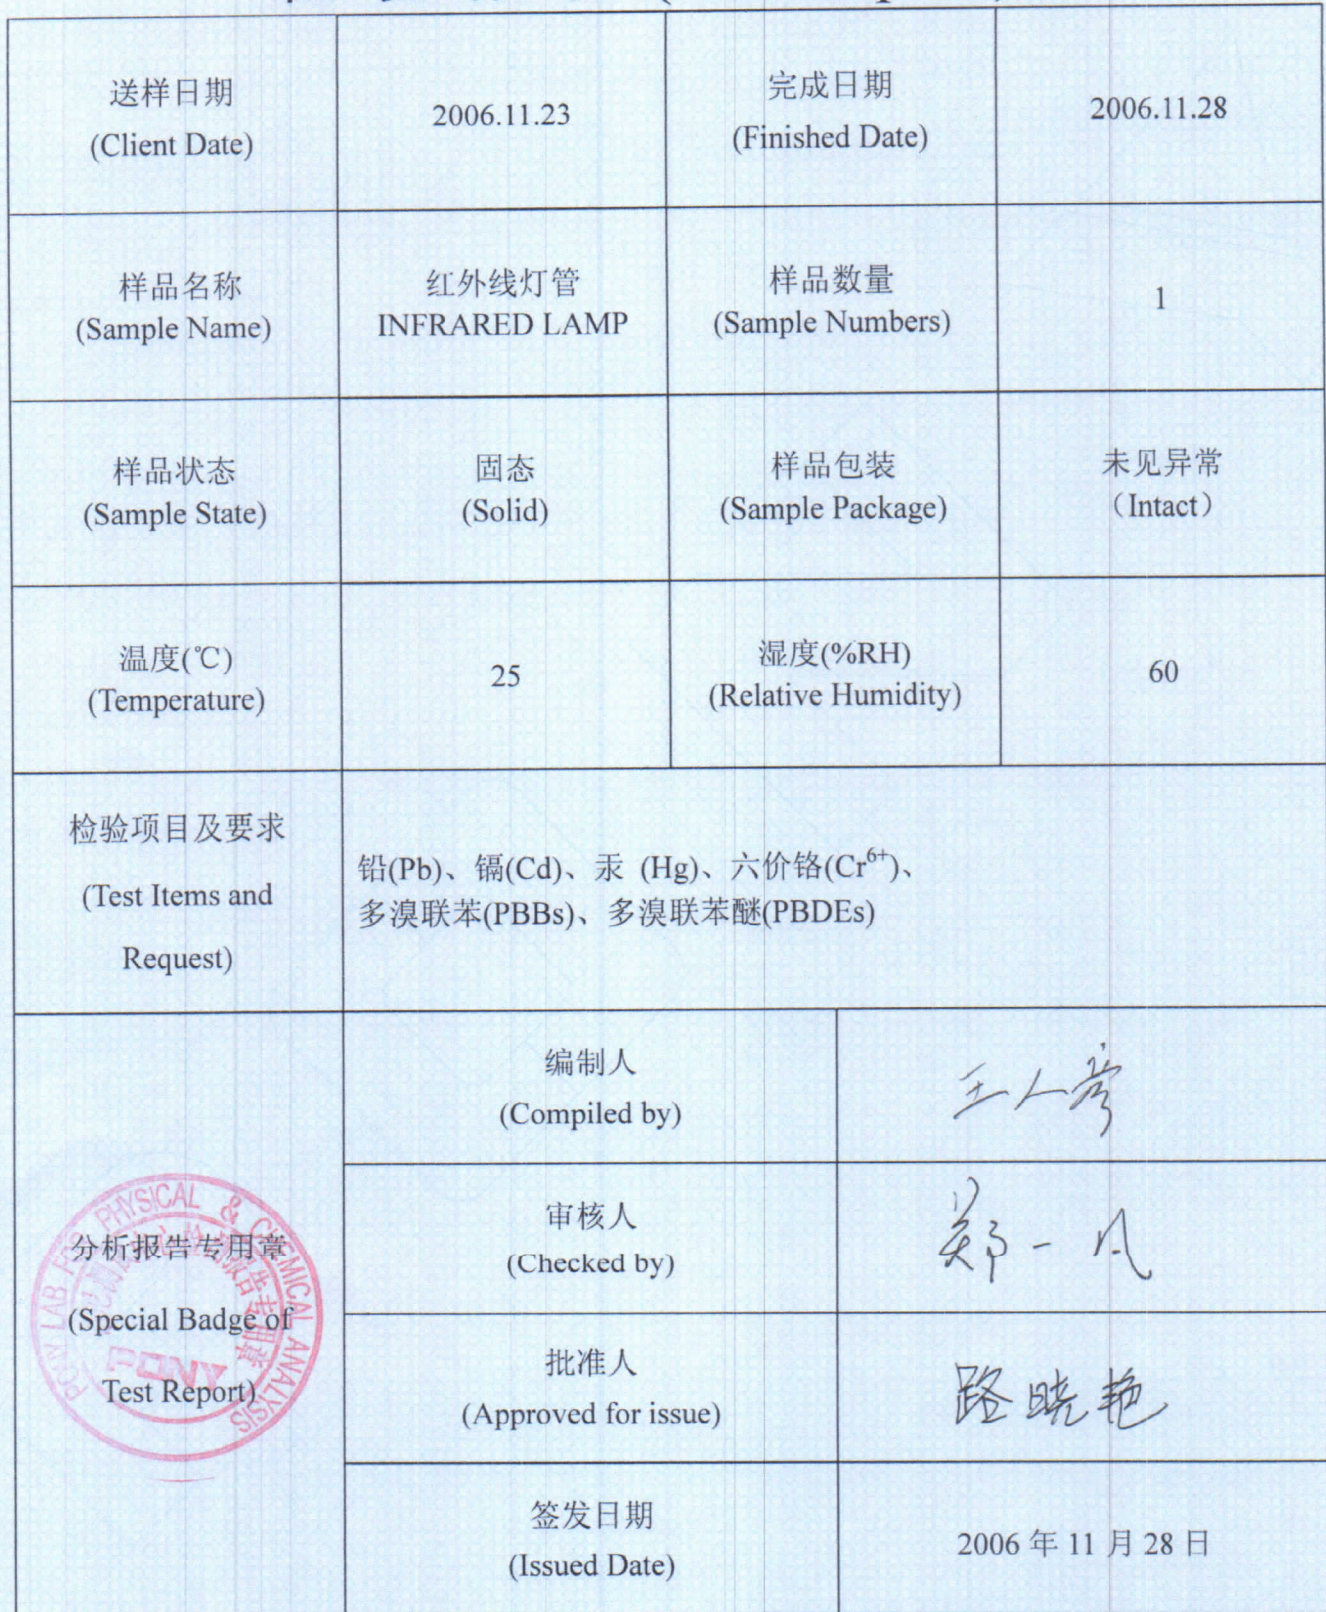 送样日期
(Client Date)
2006.11.23
完成日期
(Finished Date)
2006.11.28
样品名称
(Sample Name)
红外线灯管
INFRARED LAMP
样品数量
(Sample Numbers)
1
样品状态
(Sample State)
固态
(Solid)
样品包装
(Sample Package)
未见异常
（Intact）
温度(℃)
(Temperature)
25
湿度(%RH)
(Relative Humidity)
60
检验项目及要求
(Test Items and
Request)
铅(Pb)、镉(Cd)、汞 (Hg)、六价铬(Cr⁶⁺)、
多溴联苯(PBBs)、多溴联苯醚(PBDEs)
分析报告专用章
(Special Badge of
Test Report)
PONY LAB FOR PHYSICAL & CHEMICAL ANALYSIS
PONY
编制人
(Compiled by)
王人
审核人
(Checked by)
郑一凡
批准人
(Approved for issue)
路晓艳
签发日期
(Issued Date)
2006 年 11 月 28 日